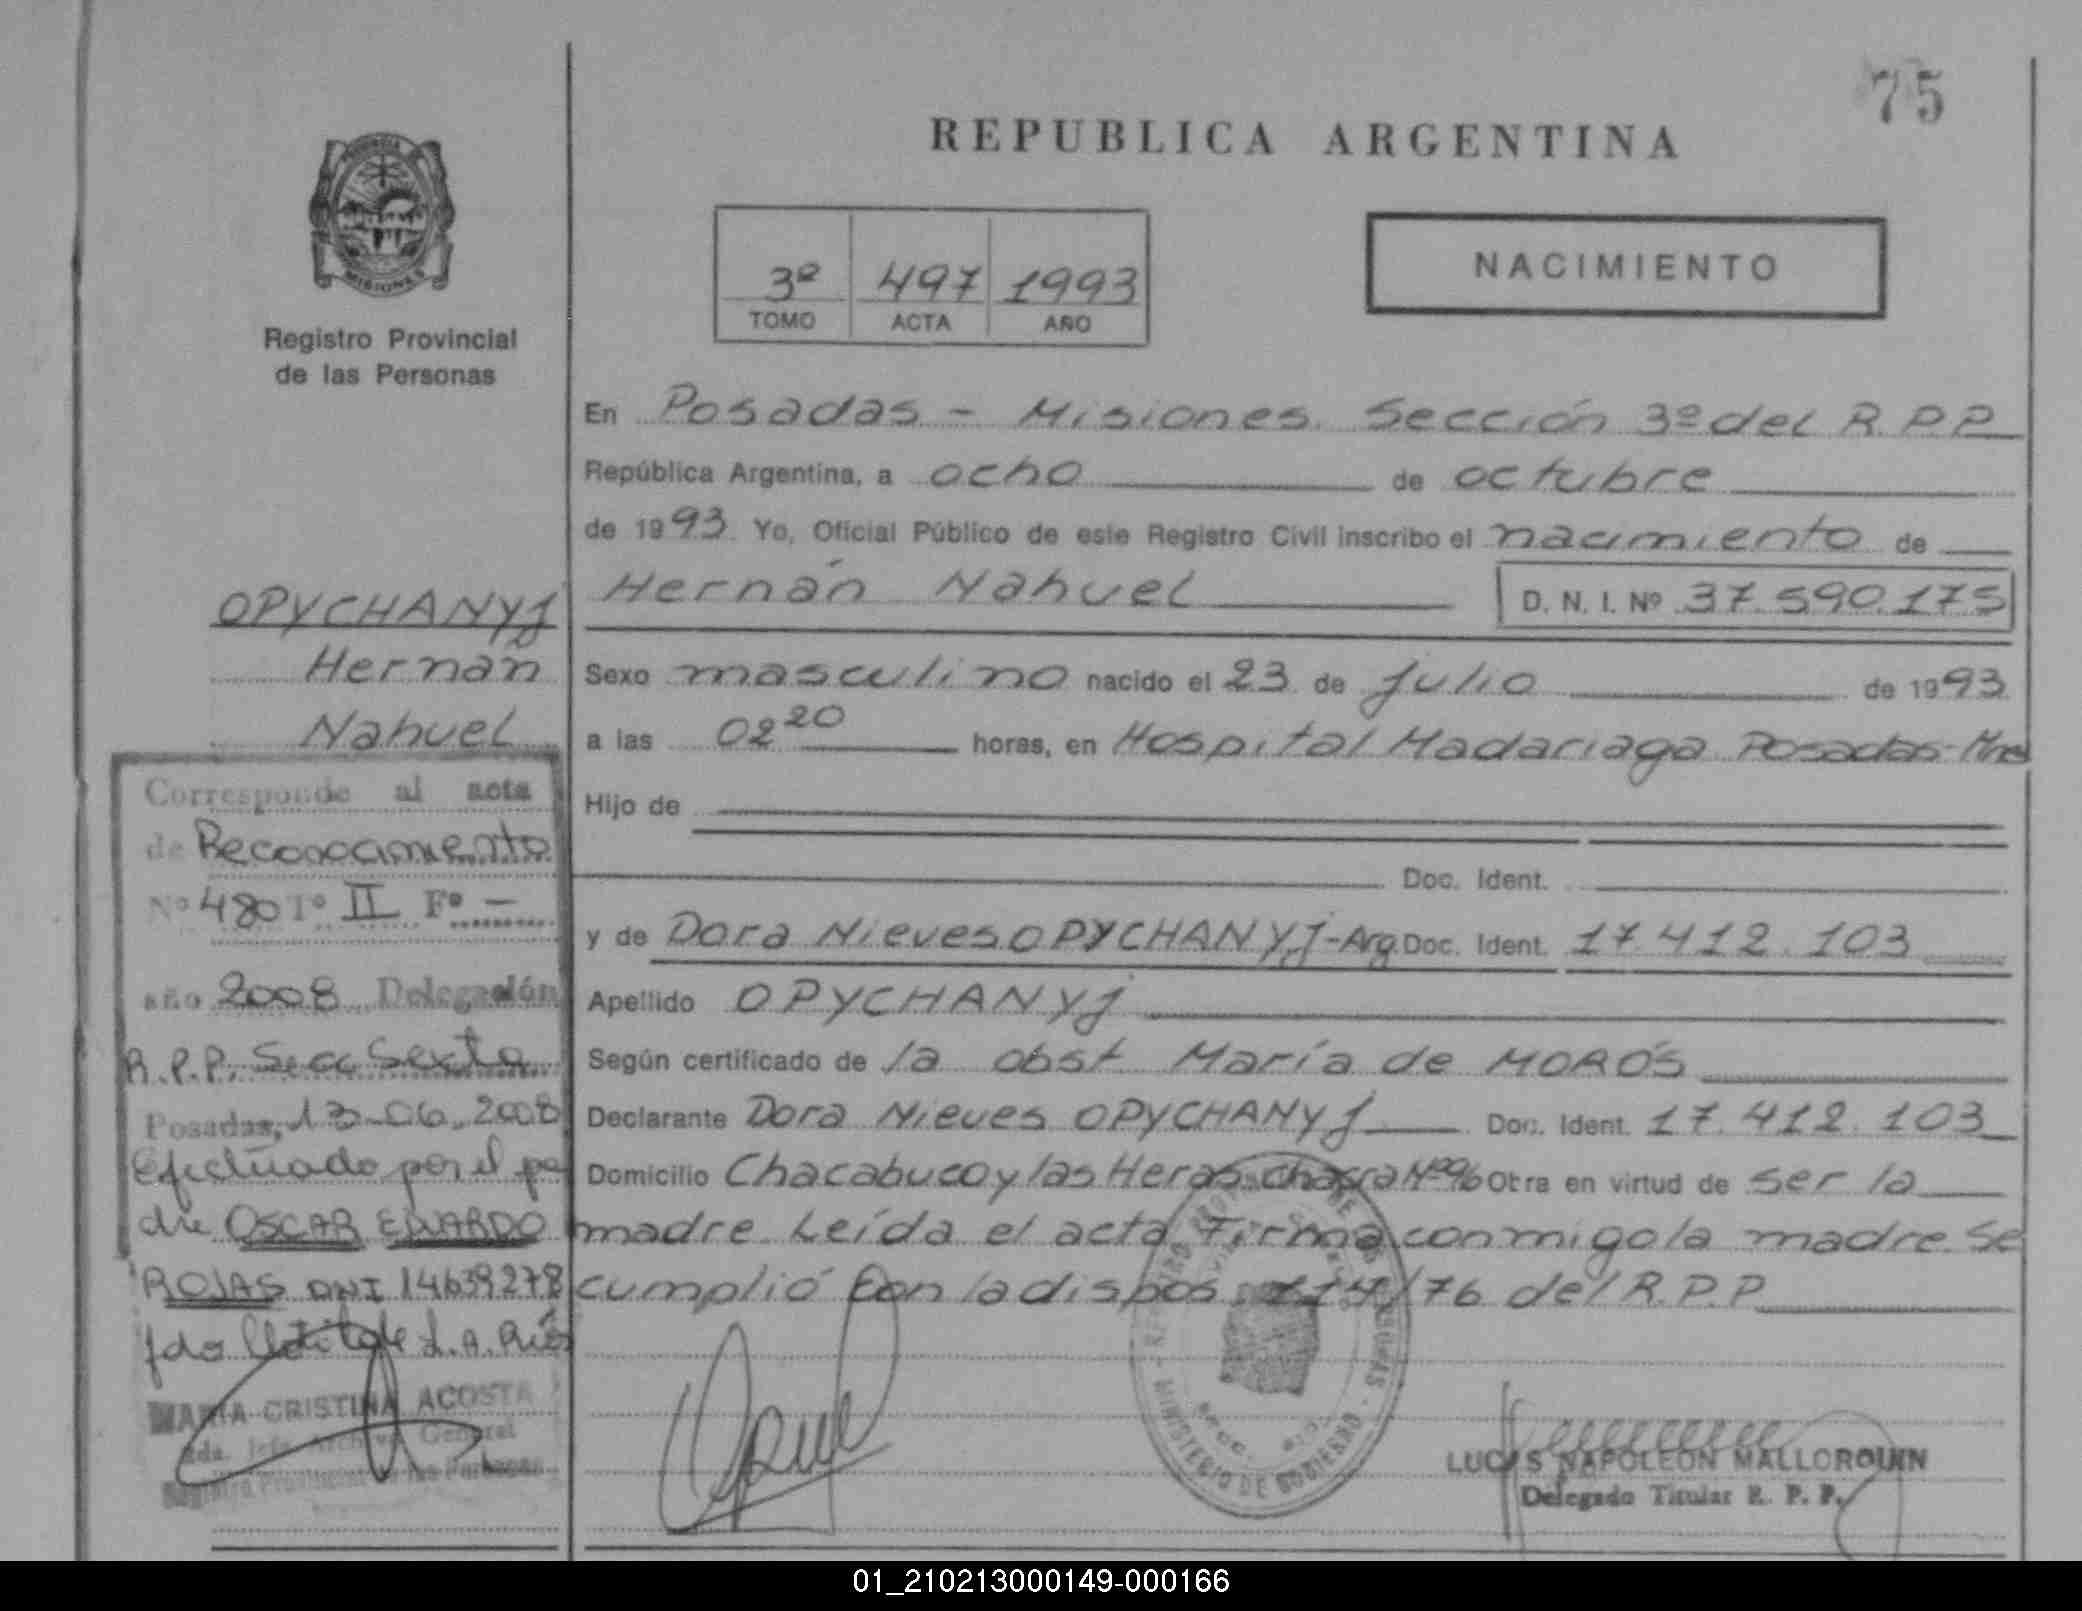 75
REPUBLICA ARGENTINA
PROVINCIA DE
MISIONES
Registro Provincial
de las Personas
3º 497 1993
TOMO ACTA AÑO
NACIMIENTO
En Posadas - Misiones. Sección 3º del R.P.P.
República Argentina, a ocho de octubre
de 1993. Yo, Oficial Público de este Registro Civil inscribo el nacimiento de
Hernán Nahuel D. N. I. Nº 37.590.175
Sexo masculino nacido el 23 de julio de 1993
a las 02 20 horas, en Hospital Madariaga Posadas-Mnes
Hijo de
Doc. Ident.
y de Dora Nieves OPYCHANYJ-Arg. Doc. Ident. 17.412.103
Apellido OPYCHANYJ
Según certificado de la obst. María de MOROS
Declarante Dora Nieves OPYCHANYJ Doc. Ident. 17.412.103
Domicilio Chacabuco y las Heras chacra Nº 96 Obra en virtud de ser la
madre. Leída el acta Firma conmigo la madre. Se
cumplió con la dispos. 114/76 del R.P.P.
OPYCHANYJ
Hernán
Nahuel
Corresponde al acta
de Reconocimiento
Nº 480 Tº II Fº -
año 2008 Delegación
R.P.P. Secc Sexta
Posadas, 13-06-2008
Efectuado por el pa
dre OSCAR EDUARDO
ROJAS DNI 14639278
fdo Clotilde L.A. Ríos
MARIA CRISTINA ACOSTA
Archivo General
Registro Provincial de las Personas
MINISTERIO DE GOBIERNO
LUCAS NAPOLEON MALLORQUIN
Delegado Titular R. P. P.
01_210213000149-000166